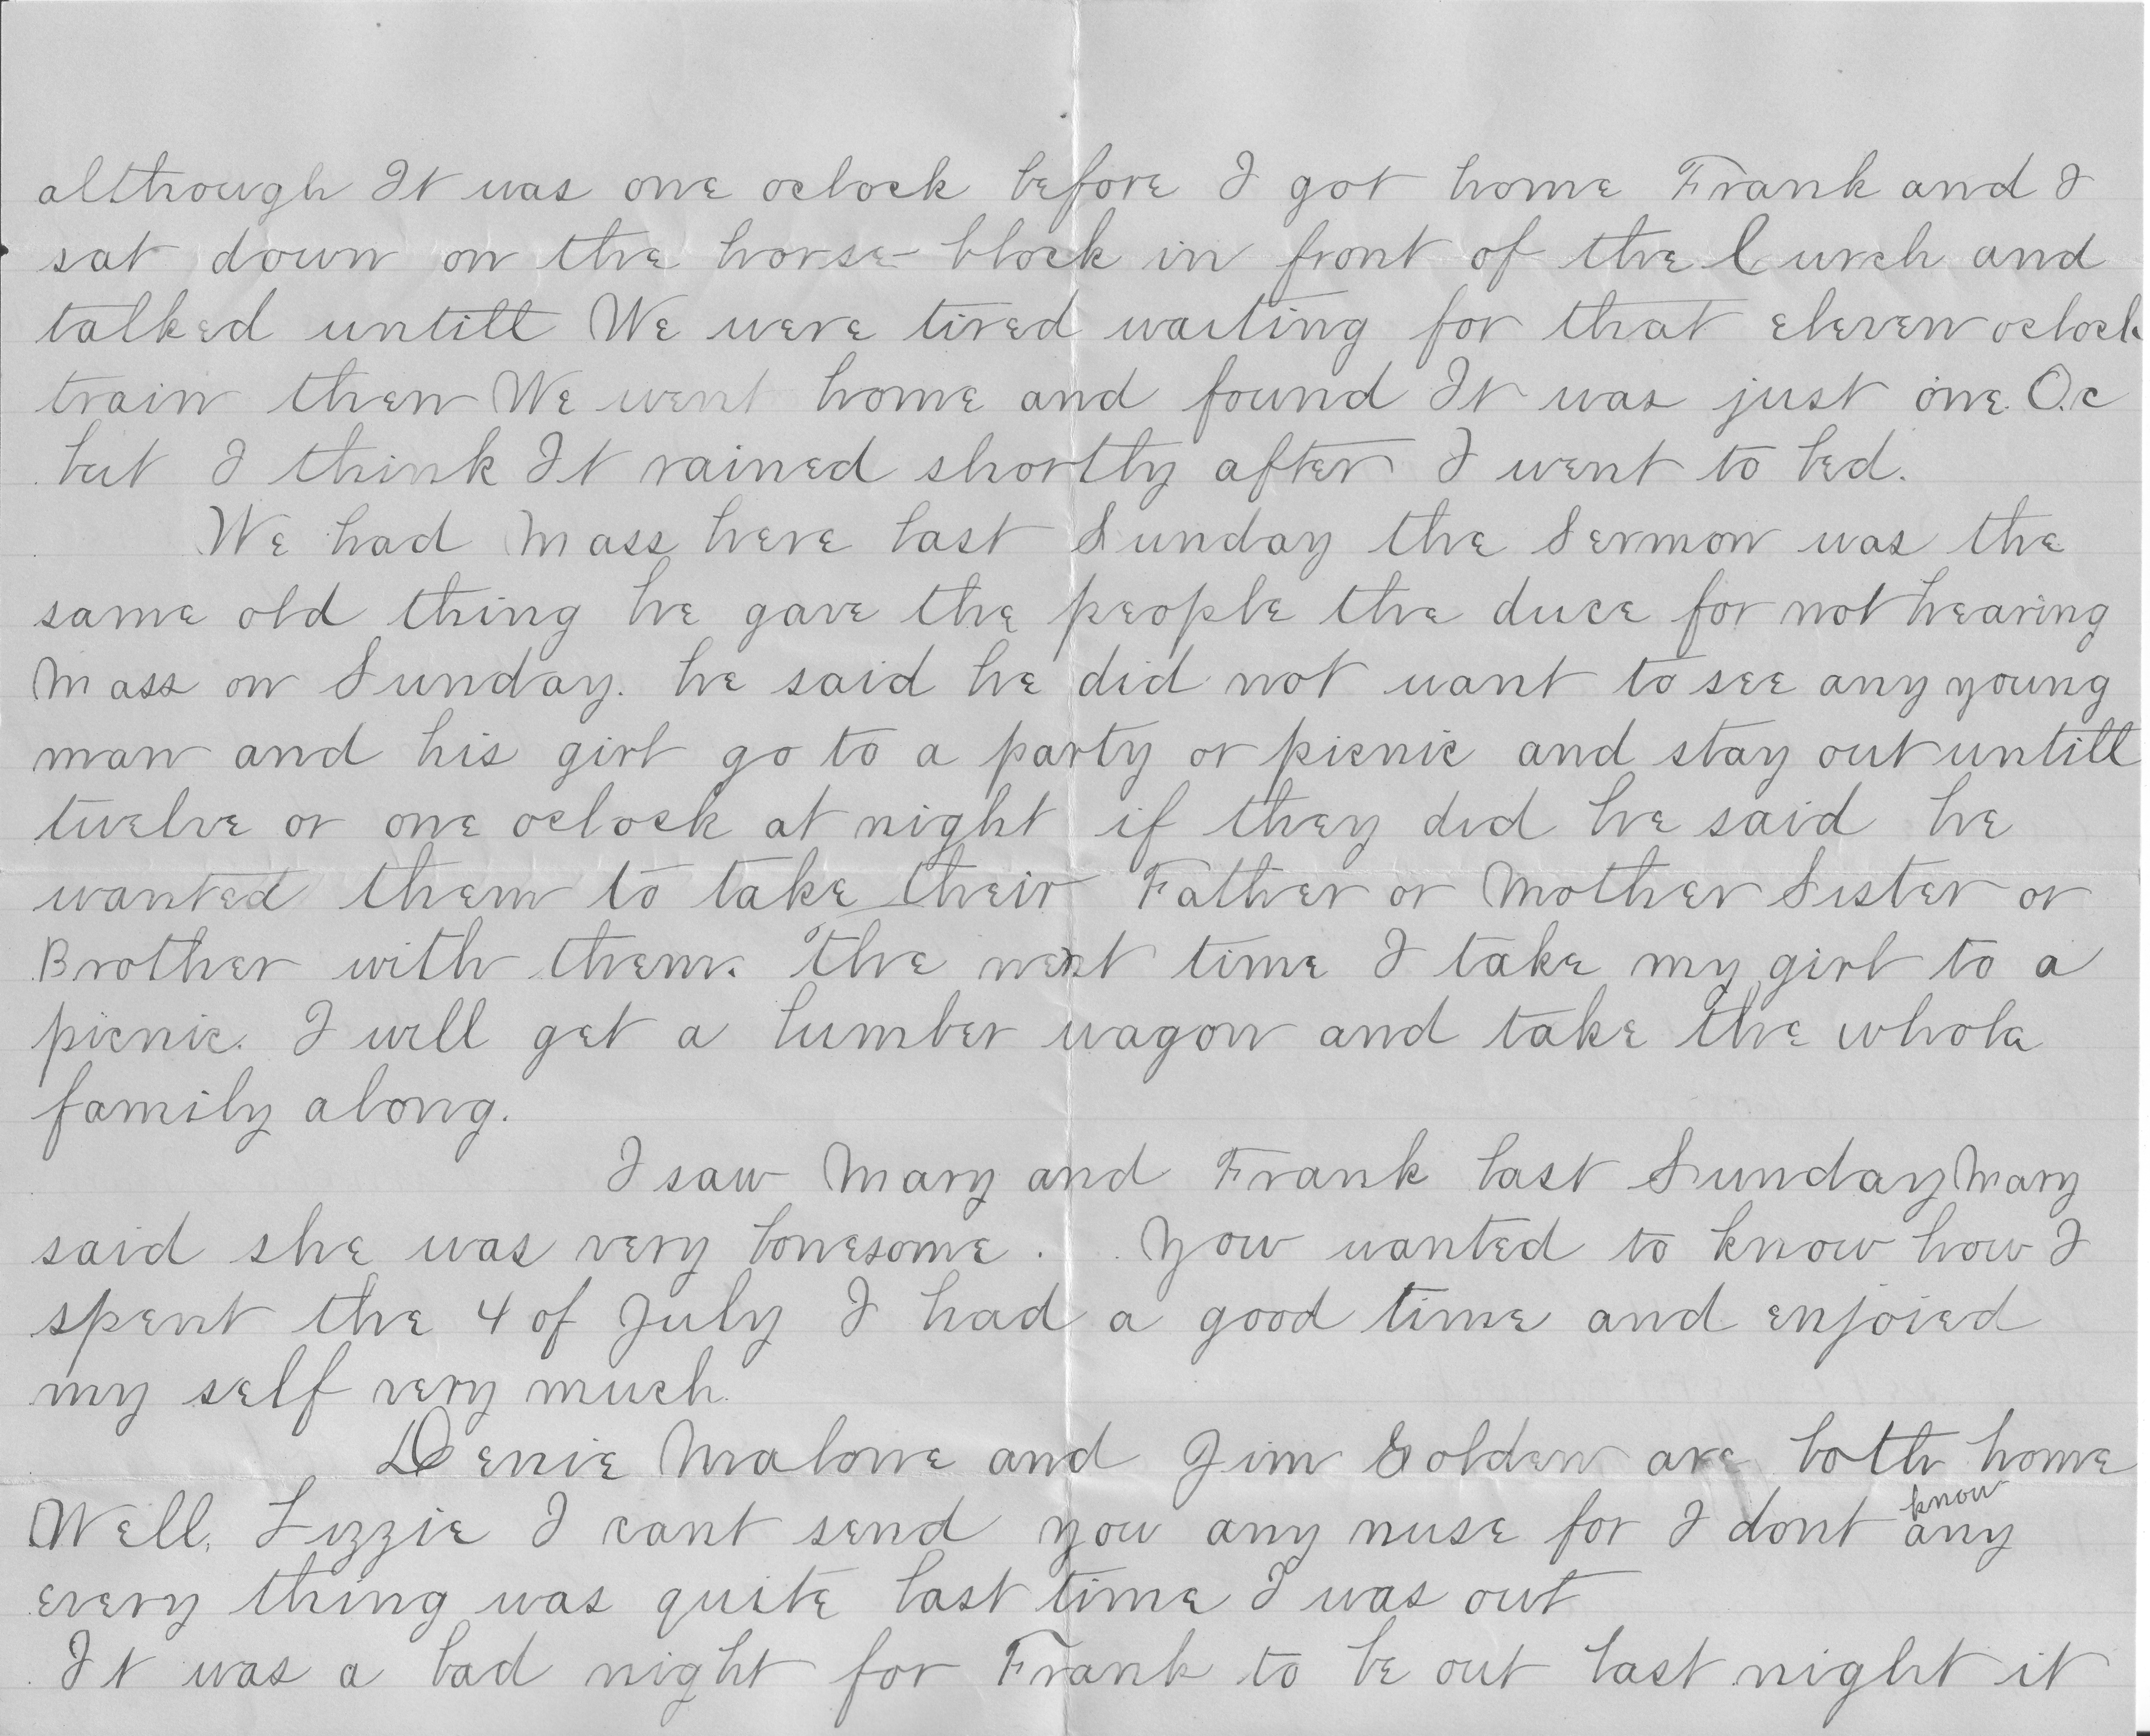 although It was one oclock before I got home Frank and I
sat down on the horse-block in front of the Curch and
talked untill We were tired waiting for that eleven oclock
train then We went home and found It was just one. O.c
but I think It rained shortly after I went to bed.
We had Mass here last Sunday the Sermon was the
same old thing he gave the people the duce for not hearing
Mass on Sunday. he said he did not want to see any young
man and his girl go to a party or picnic and stay out untill
twelve or one oclock at night if they did he said he
wanted them to take their Father or Mother Sister or
Brother with them. The next time I take my girl to a
picnic. I will get a lumber wagon and take the whole
family along.
I saw Mary and Frank last Sunday Mary
said she was very lonesome. You wanted to know how I
spent the 4 of July I had a good time and enjoied
my self very much.
Denie Malone and Jim Golden are both home
Well, Lizzie I cant send you any nuse for I dont know any
every thing was quite last time I was out
It was a bad night for Frank to be out last night it